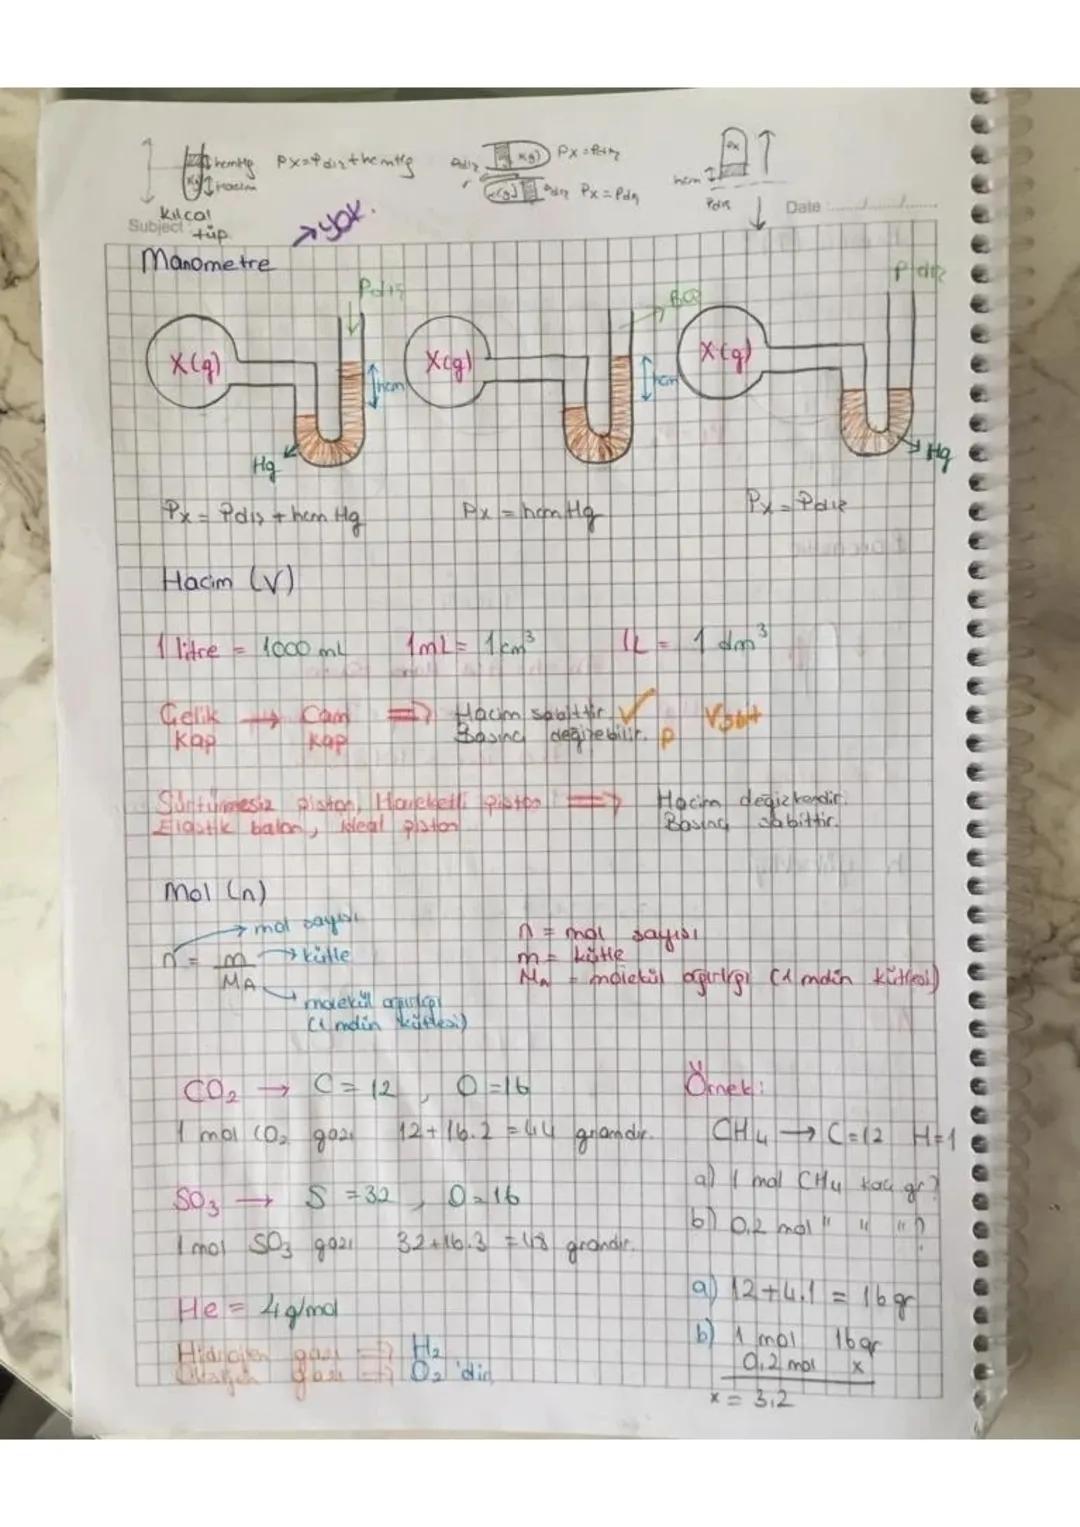 hcmHg Px=Pdış+hcmHg
Hacim
kılcal
tüp
Px=Pdış
Px = Pdış
x(g)
Px
hcm
Pdış
Subject
Date
→ yok.
Manometre
Pdış
P dış
X(g)
X(g)
X(g)
hcm
hcm
Hg
Hg
Px = Pdış + hcm Hg
Px = hcmHg
Px = Pdış
Hacim (V)
1 litre = 1000 mL 1mL = 1cm³ 1L = 1 dm³
Çelik → Cam ⇒ Hacim sabittir. ✓ P Vsbit
Kap kap Basınç değişebilir.
Sürtünmesiz piston, Hareketli piston ⇒ Hacim değişkendir.
Elastik balon, İdeal piston Basınç sabittir.
Mol (n)
→ mol sayısı
n = m → kütle
MA
→ molekül ağırlığı
(1 molün kütlesi)
n = mol sayısı
m = kütle
MA = molekül ağırlığı (1 molün kütlesi)
CO₂ → C = 12 , O = 16
1 mol CO₂ gazı 12 + 16.2 = 44 gramdır.
SO₃ → S = 32 , O = 16
1 mol SO₃ gazı 32+16.3 = 48 gramdır.
He = 4 g/mol
Hidrojen gazı ⇒ H₂
Oksijen gazı ⇒ O₂ 'dir
Örnek:
CH₄ → C=12 H=1
a) 1 mol CH₄ kaç gr?
b) 0,2 mol " " " ?
a) 12+4.1 = 16 gr
b) 1 mol 16gr
0,2 mol x
x = 3,2